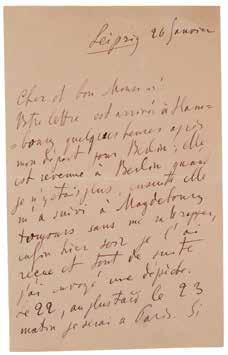 Leipzig 26 Janvier
Cher et bon Monsieur!
Votre lettre est arrivée à Ham-
=bourg quelques heures après
mon départ pour Berlin; elle
est revenue à Berlin quand
je n'y étais plus, ensuite elle
m'a suivi à Magdebourg
toujours sans me rattraper,
enfin hier soir je l'ai
reçue et tout de suite
j'ai envoyé une dépêche.
Le 22, au plus tard le 23
matin je serai à Paris. Si